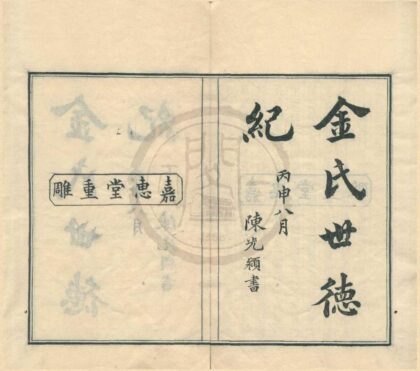 金氏世德
紀
丙申八月
陳光穎書
嘉惠堂重雕